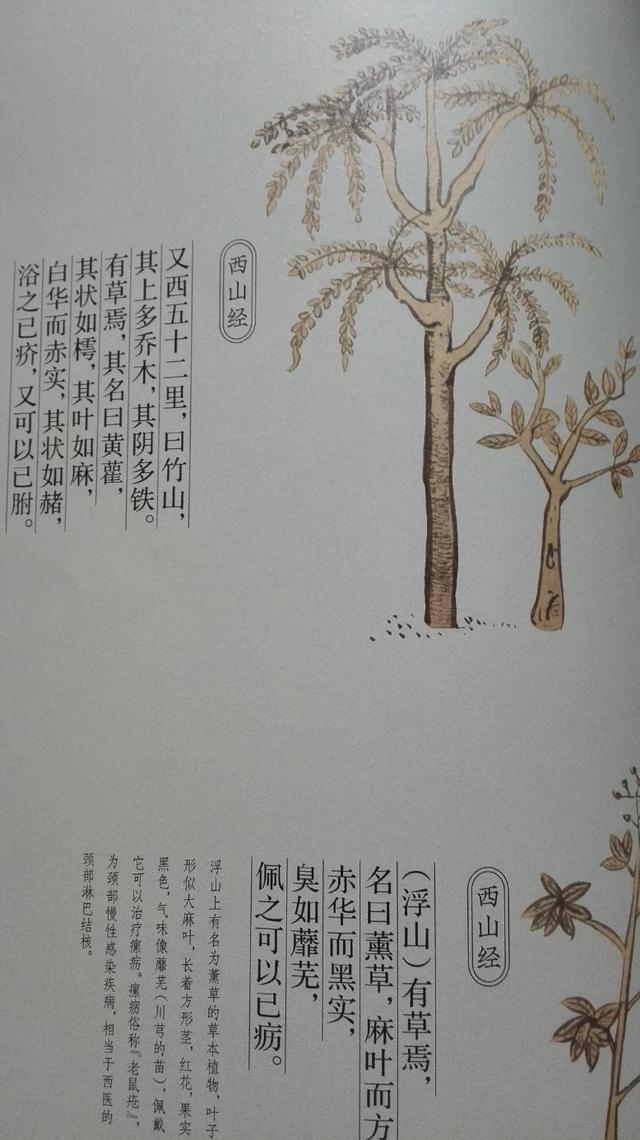 西山经
又西五十二里，曰竹山，
其上多乔木，其阴多铁。
有草焉，其名曰黄雚，
其状如樗，其叶如麻，
白华而赤实，其状如赭，
浴之已疥，又可以已胕。
西山经
（浮山）有草焉，
名曰薰草，麻叶而方
赤华而黑实，
臭如蘼芜，
佩之可以已疬。
浮山上有名为薰草的草本植物，叶子
形似大麻叶，长着方形茎，红花，果实
黑色，气味像蘼芜（川芎的苗），佩戴
它可以治疗瘰疬。瘰疬俗称『老鼠疮』，
为颈部慢性感染疾病，相当于西医的
颈部淋巴结核。